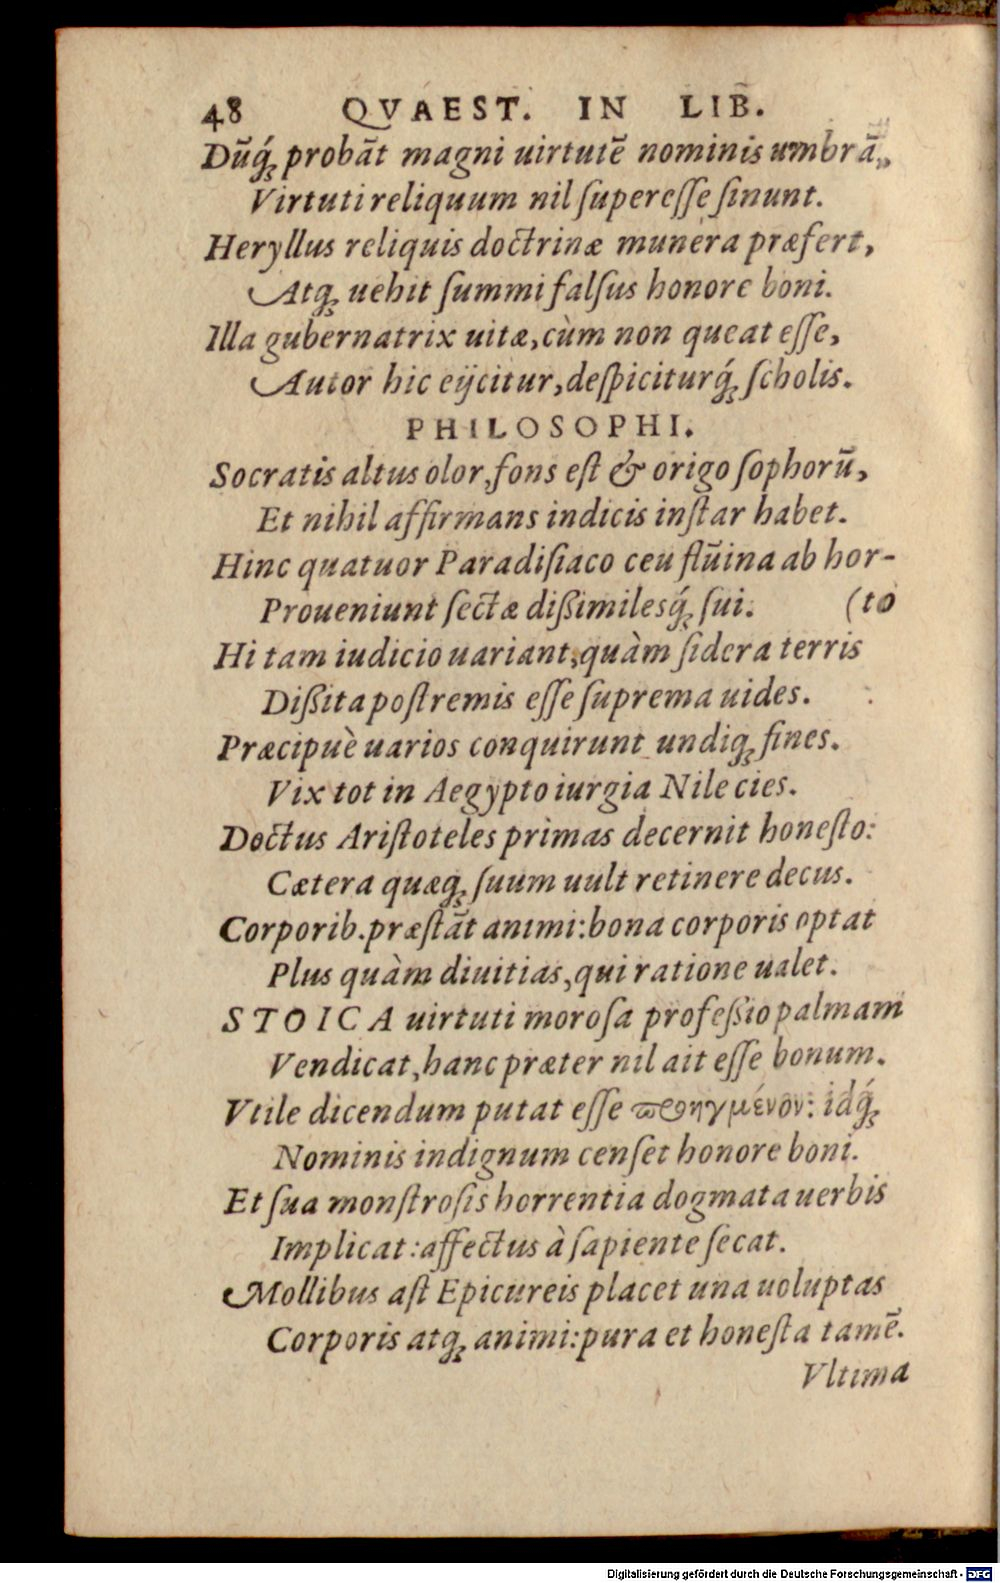 48 QVAEST. IN LIB.
Dū́q; probāt magni uirtutē nominis umbrā,
Virtuti reliquum nil ſupereſſe ſinunt.
Heryllus reliquis doctrinæ munera præfert,
Atq; uehit ſummi falſus honore boni.
Illa gubernatrix uitæ, cùm non queat eſſe,
Autor hic eijcitur, deſpiciturq́; ſcholis.
PHILOSOPHI.
Socratis altus olor, fons eſt & origo ſophorū,
Et nihil affirmans indicis inſtar habet.
Hinc quatuor Paradiſiaco ceu flūina ab hor-
Proueniunt ſectæ dißimilesq́; ſui. (to
Hi tam iudicio uariant, quàm ſidera terris
Dißita poſtremis eſſe ſuprema uides.
Præcipuè uarios conquirunt undiq; fines.
Vix tot in Aegypto iurgia Nile cies.
Doctus Ariſtoteles primas decernit honeſto:
Cætera quæq; ſuum uult retinere decus.
Corporib. præſtāt animi: bona corporis optat
Plus quàm diuitias, qui ratione ualet.
STOICA uirtuti moroſa profeßio palmam
Vendicat, hanc præter nil ait eſſe bonum.
Vtile dicendum putat eſſe ϖρηγμένον: idq́;
Nominis indignum cenſet honore boni.
Et ſua monſtroſis horrentia dogmata uerbis
Implicat: affectus à ſapiente ſecat.
Mollibus aſt Epicureis placet una uoluptas
Corporis atq; animi: pura et honeſta tamē.
Vltima
Digitalisierung gefördert durch die Deutsche Forschungsgemeinschaft - DFG